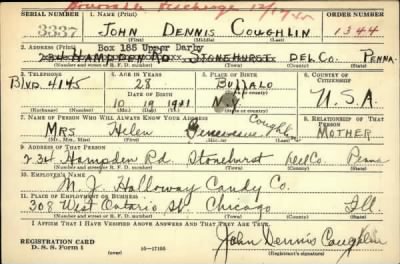 Honorable Discharge 12/17/45
SERIAL NUMBER 1. NAME (Print) ORDER NUMBER
3337 JOHN DENNIS COUGHLIN 1344
(First) (Middle) (Last)
2. ADDRESS (Print) Box 185 Upper Darby
234 HAMPDEN RD STONEHURST DEL CO. PENNA.
(Number and street or R. F. D. number) (Town) (County) (State)
3. TELEPHONE 4. AGE IN YEARS 5. PLACE OF BIRTH 6. COUNTRY OF CITIZENSHIP
BLVD. 4145 28 BUFFALO
DATE OF BIRTH (Town or county)
10 19 N.Y. U.S.A.
(Exchange) (Number) (Mo.) (Day) (Yr.) (State or country)
7. NAME OF PERSON WHO WILL ALWAYS KNOW YOUR ADDRESS 8. RELATIONSHIP OF THAT PERSON
MRS Helen Genevieve Coughlin MOTHER
(Mr., Mrs., Miss) (First) (Middle) (Last)
9. ADDRESS OF THAT PERSON
234 Hampden Rd. Stonehurst Del Co. Penna
(Number and street or R. F. D. number) (Town) (County) (State)
10. EMPLOYER'S NAME
M. J. Holloway Candy Co.
11. PLACE OF EMPLOYMENT OR BUSINESS
308 West Ontario St Chicago Ill
(Number and street or R. F. D. number) (Town) (County) (State)
I AFFIRM THAT I HAVE VERIFIED ABOVE ANSWERS AND THAT THEY ARE TRUE.
REGISTRATION CARD
D. S. S. Form 1 (over) 16—17105 John Dennis Coughlin
(Registrant's signature)